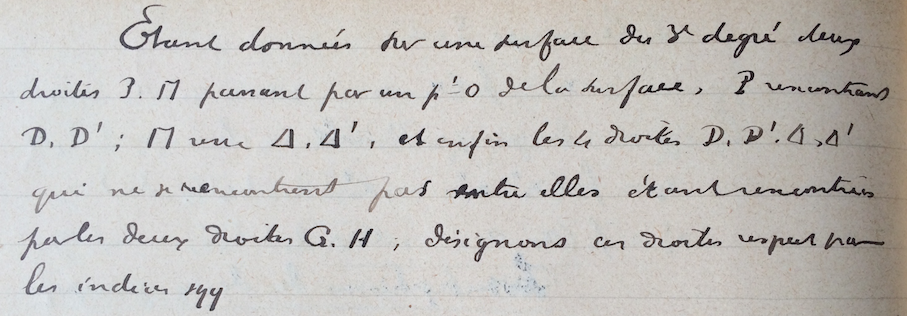 Etant données sur une surface du 3e degré deux
droites P. Π passant par un pt O de la surface, P rencontrant
D, D' ; Π Δ, Δ', et enfin les 4 droites D, D'. Δ, Δ'
qui ne se rencontrent pas entre elles étant rencontrées
par les deux droites G. H ; désignons ces droites respect par
les indices